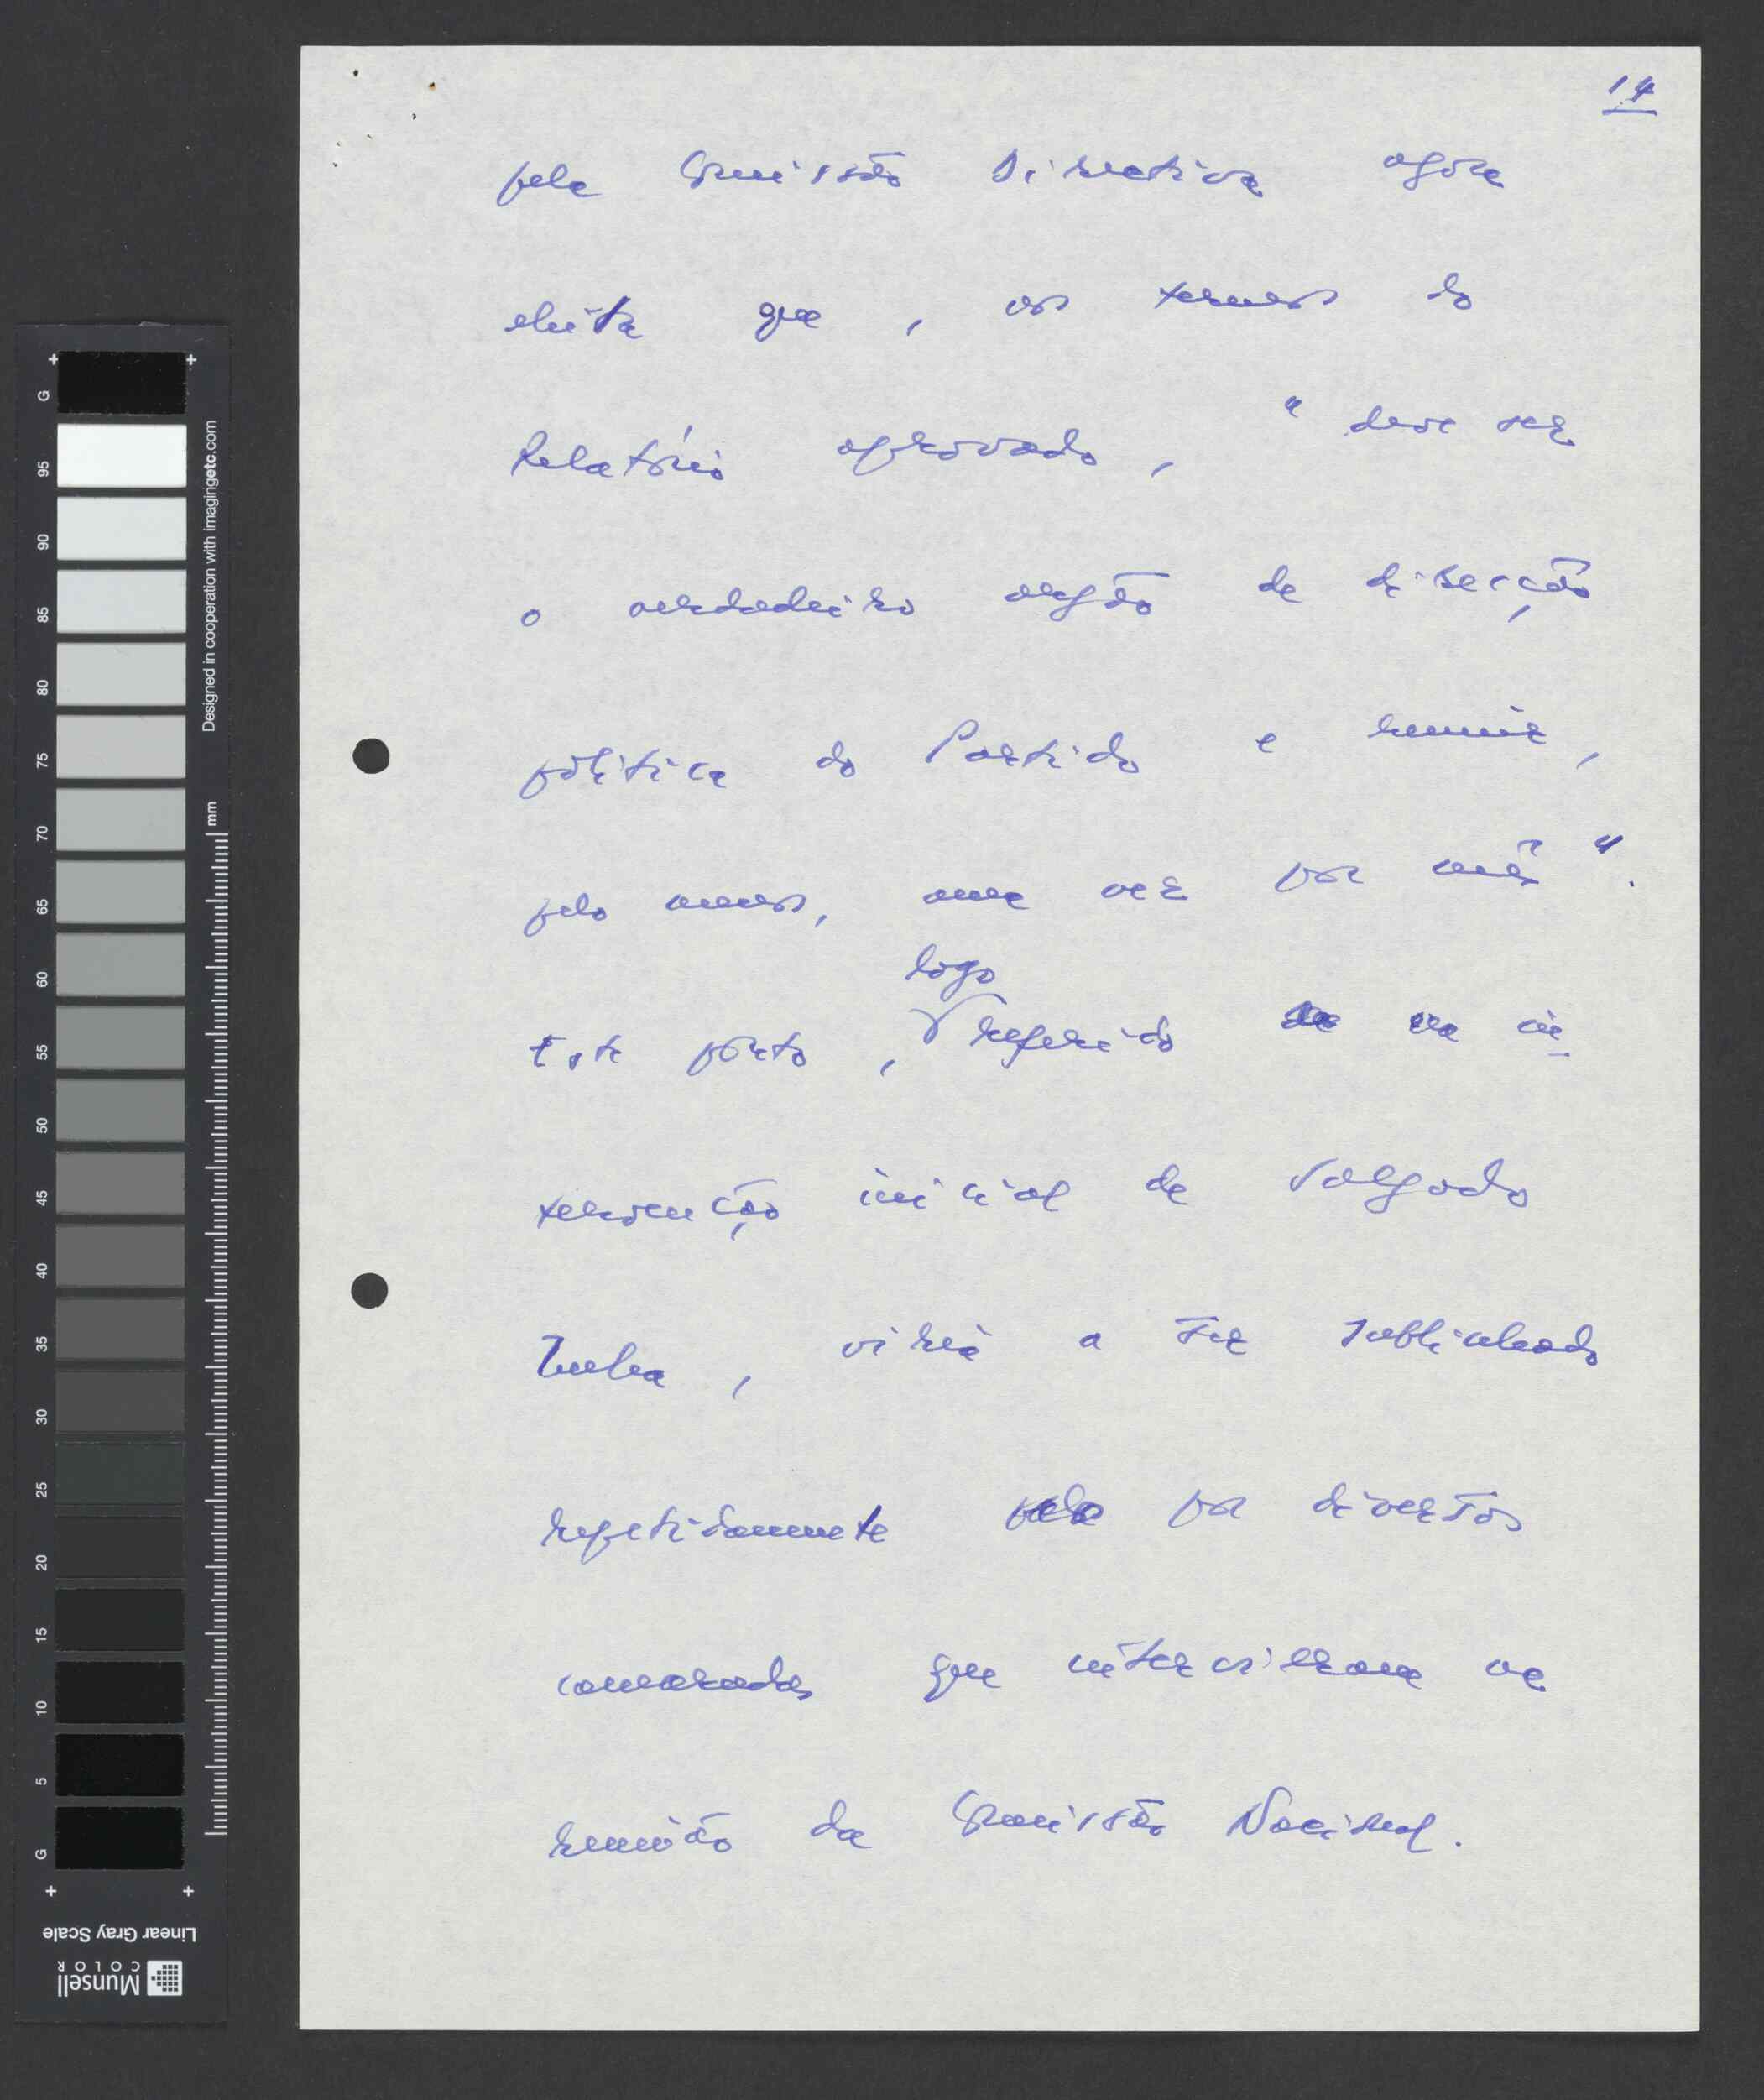 14
pela Comissão Directiva agora
eleita que, nos termos do
Relatório aprovado, "deve ser
o verdadeiro orgão de direcção
política do Partido e reunir,
pelo menos, uma vez por mês".
logo
Este ponto, referido na in
tervenção inicial de Salgado
Zenha, viria a ser sublinhado
repetidamente por diversos
camaradas que intervieram na
reunião da Comissão Nacional.
G 95 90 85 80 75 70 65 60 55 50 45 40 35 30 25 20 15 10 5 G
Designed in cooperation with imagingetc.com
mm
Linear Gray Scale
Munsell
COLOR